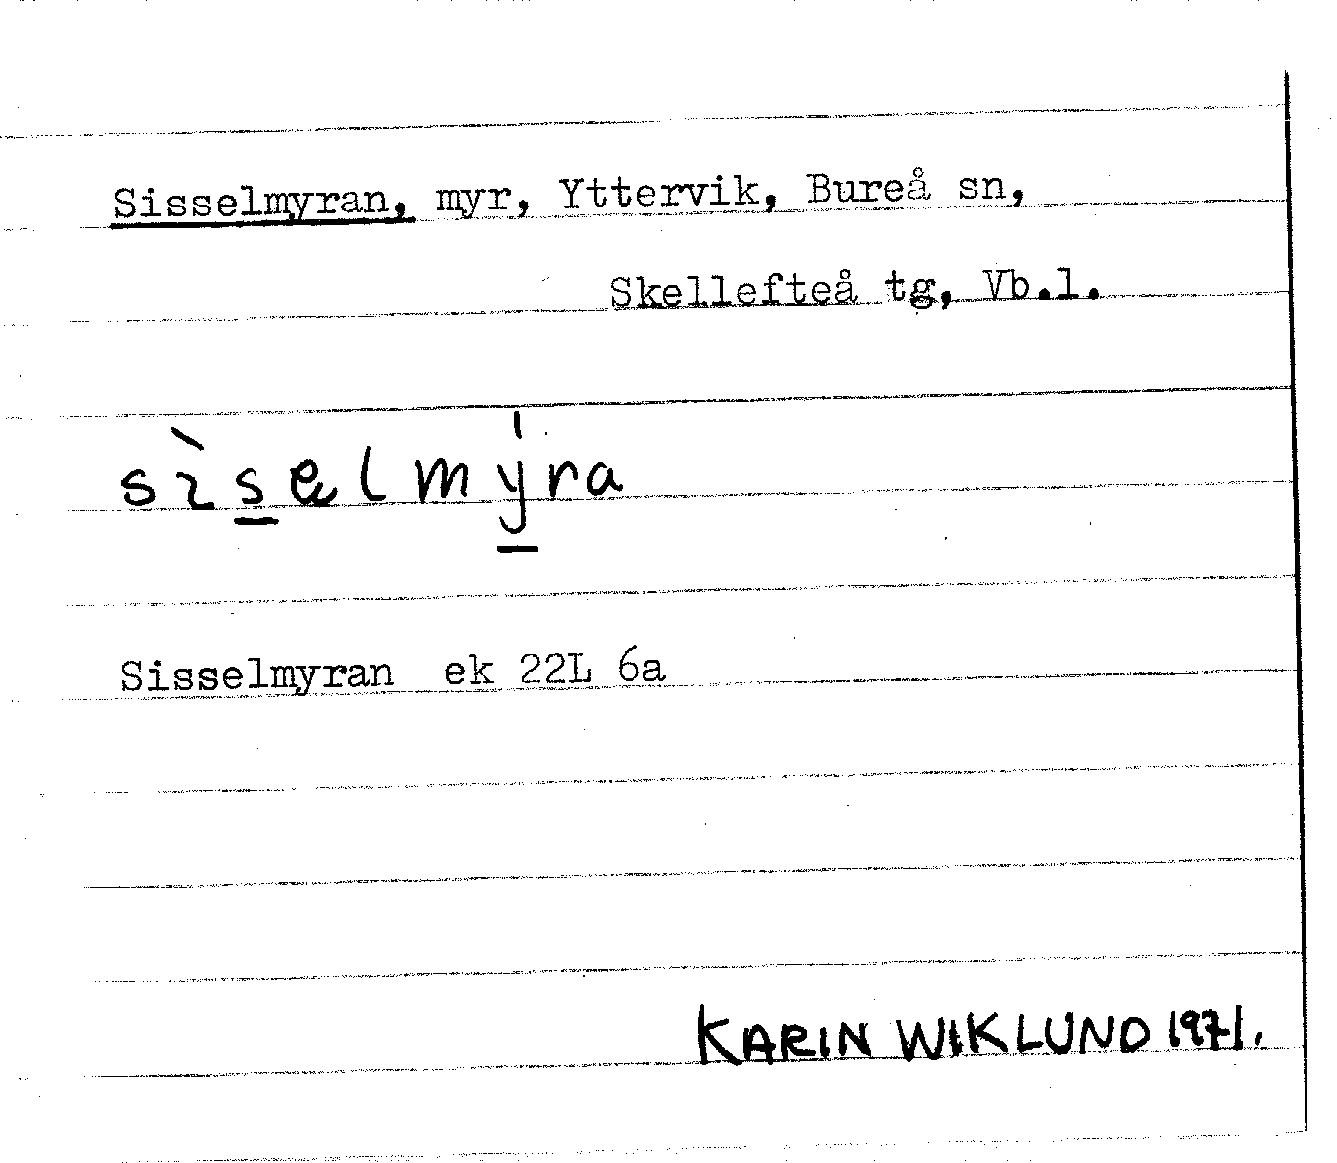 Sisselmyran, myr, Yttervik, Bureå sn,
Skellefteå tg, Vb.l.
sìs̲elmý̲ra
Sisselmyran ek 22L 6a
KARIN WIKLUND 1971.